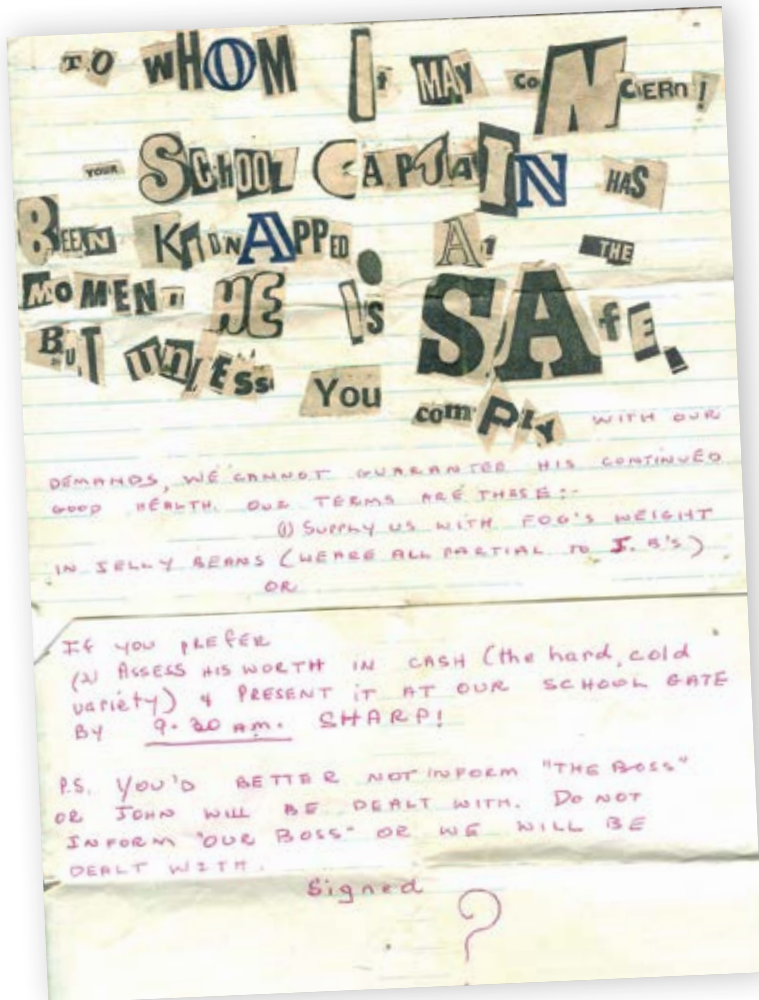 TO WHOM It MAY CoNCERn!
YOUR SCHOOL CAPTAIN HAS
BEEN KIDNAPPED. At THE
MOMENT HE Is SAfE,
BUT UNLESS You comPLY WITH OUR
DEMANDS, WE CANNOT GUARANTEE HIS CONTINUED
GOOD HEALTH. OUR TERMS ARE THESE:-
(1) SUPPLY US WITH FOG'S WEIGHT
IN JELLY BEANS (WE ARE ALL PARTIAL TO J. B'S)
OR
If YOU PREFER
(2) ASSESS HIS WORTH IN CASH (the hard, cold
variety) & PRESENT it AT OUR SCHOOL GATE
BY 9.30 AM. SHARP!
P.S. YOU'D BETTER NOT INFORM "THE BOSS"
OR JOHN WILL BE DEALT WITH. DO NOT
INFORM "OUR BOSS" OR WE WILL BE
DEALT WITH.
Signed
?